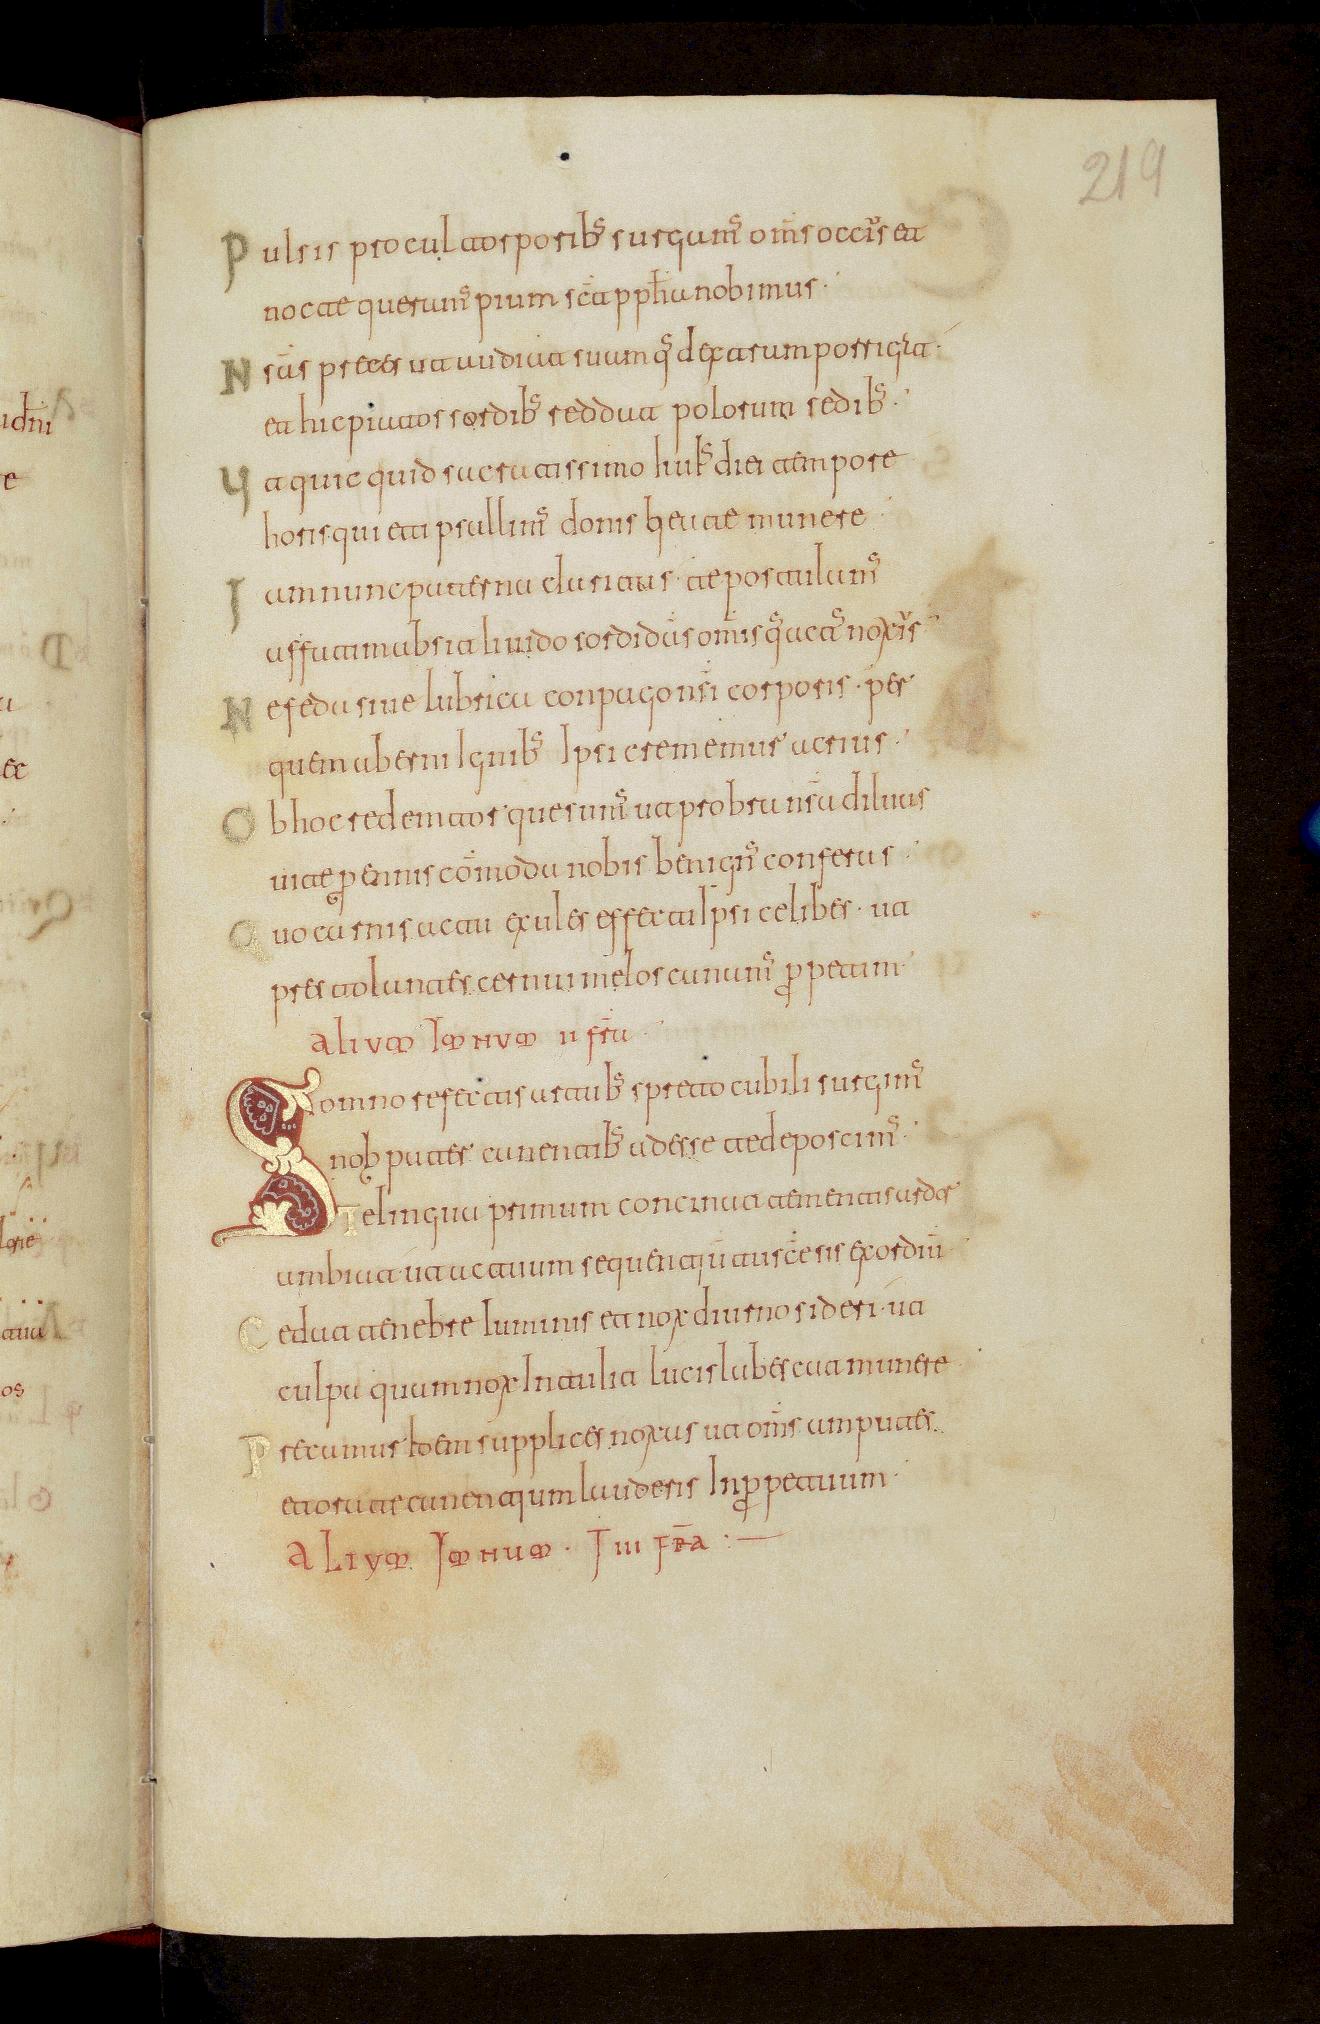 219
Pulsis procul torporib; surgam; om̅s occi͛s et
nocte queram; pium sc̅i pph̅ia nobimus·
Nr̅as preces ut audiat suamq; dexteram porrigɩat·
et hic piatos sordib; reddat polorum sedib;·
Ut quicquid sacratissimo hui; diei tempore
horis quieti psallim; donis beate munere·
Iam nunc paterna claritas· te postulam;
affatim absit libido sordida̅s om̅is q; act; noxi͛s·
Ne feda sine lubrica conpago nr̅i corporis· per
quem aberni Ignib; Ipsi crememus acrius·
Ob hoc redemtor quesum; ut probra nr̅a diluas
uite p̱ennis co̅moda nobis benign; conferas·
Quo carnis actu exules effecti Ipsi celibes· ut
prestolantes cernui melos canam; p̱petim
alivm Imnvm ii fr̅a·
Somno refectis artub; spreto cubili surgim;
nob̵ pater canentib; adesse te deposcim;·
Te lingua primum concinat te mentis ardor
ambiat ut actuum sequentiu̅ tu sc̅e sis exordiu̅
Cedat tenebre luminis et nox diurno sideri· ut
culpa quam nox Intulit lucis labescat munere
Precamur Idem supplices noxas ut om̅s amputes·
et ore te canentium lauderis In p̱petuum·
alivm Imnum· I iii fr̅a :—